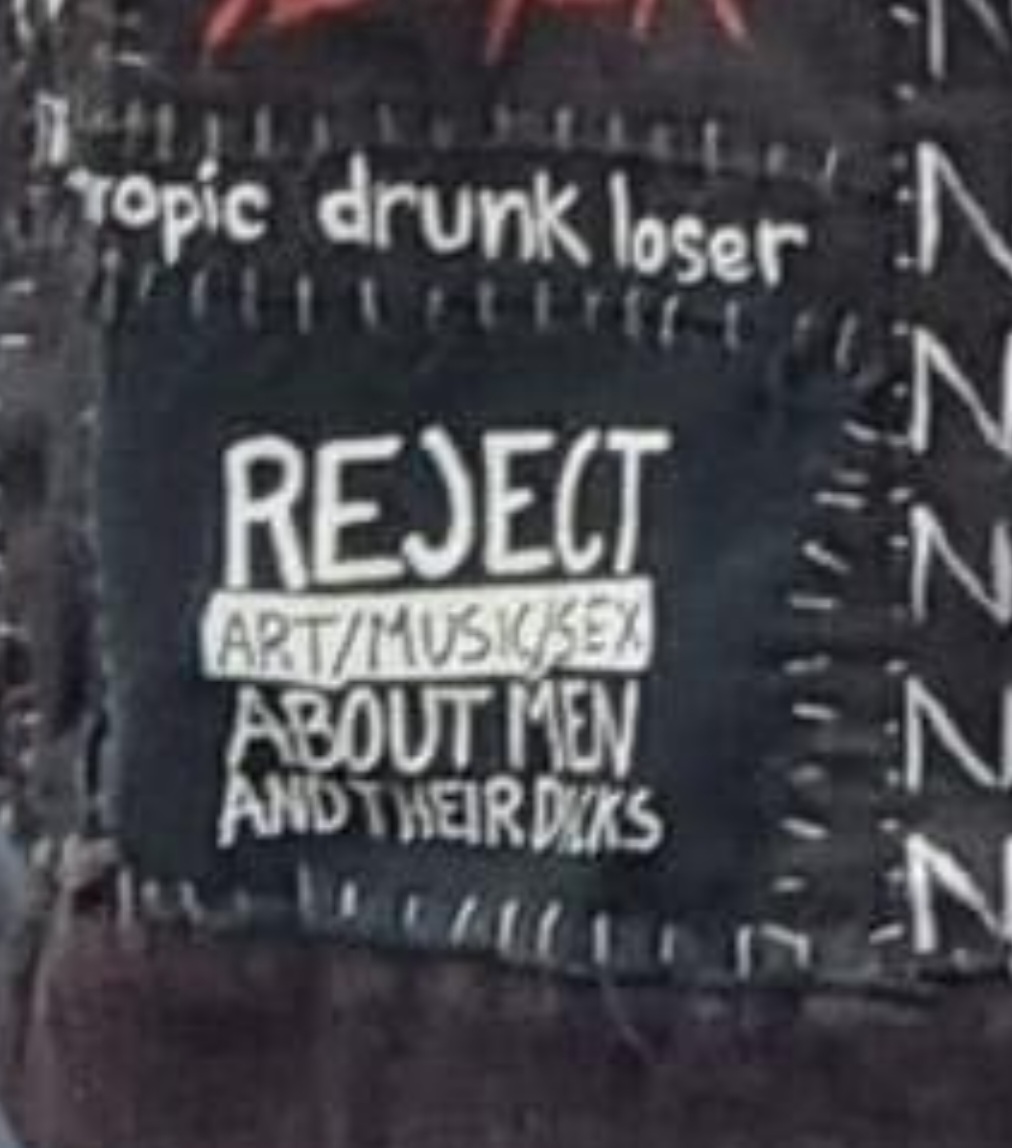 tropic drunk loser
REJECT
ART/MUSIC/SEX
ABOUT MEN
AND THEIR DICKS
N
N
N
N
N